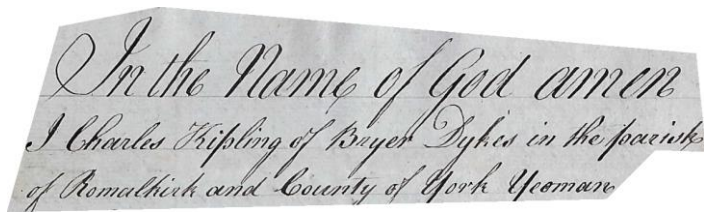 In the Name of God amen
I Charles Kipling of Bryer Dykes in the parish
of Romalkirk and County of York Yeoman